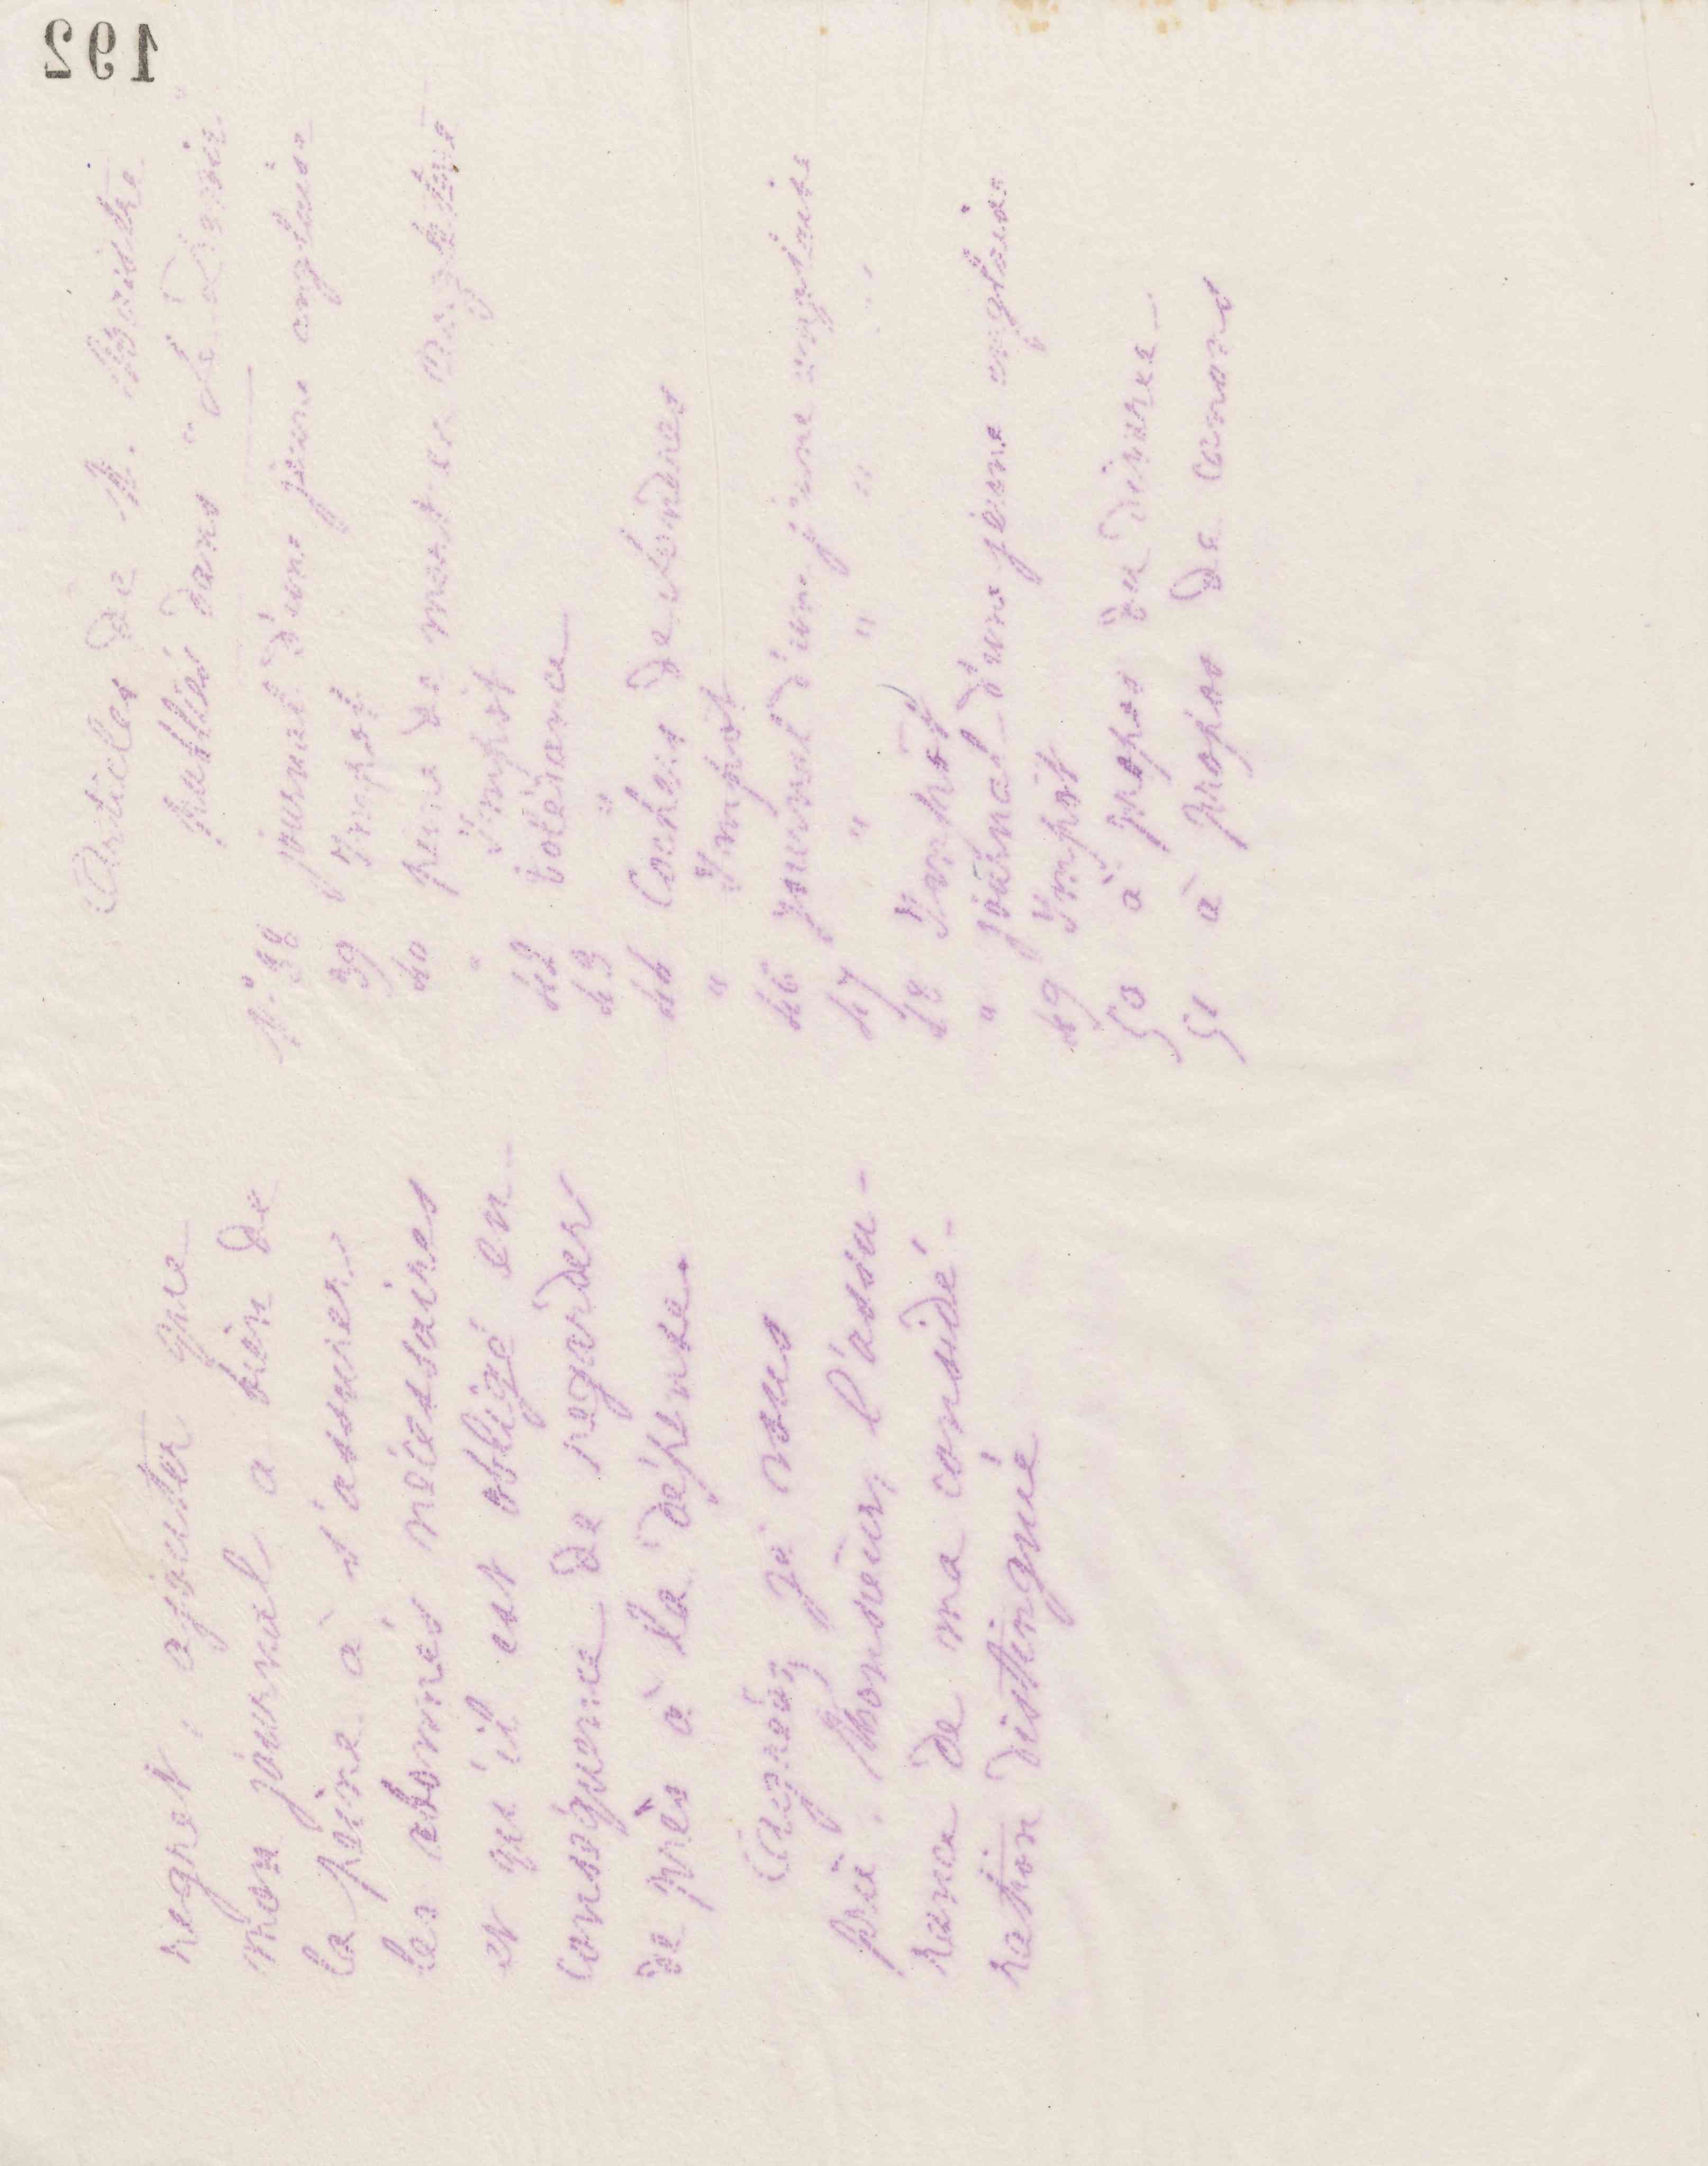 192
regret, ajouter que
mon journal a bien de
la peine à s'assurer
les abonnés nécessaires
et qu'il est obligé en
conséquence de regarder
de près à la dépense.
Agréez je vous
prie, Monsieur, l'assu-
rance de ma considé-
ration distinguée
Articles de M.
publiés dans "Le Devoir"
N° 38 journal d'une jeune anglaise
39 Impôt
40 peine de mort en Angleterre
" Impôt
42 tolérance
43 "
44 Cochers de Londres
" Impôt
46 journal d'une jeune anglaise
47 " " " "
48 Impôt
" journal d'une jeune anglaise
49 Impôt
50 à propos du divorce
51 à propos de canons